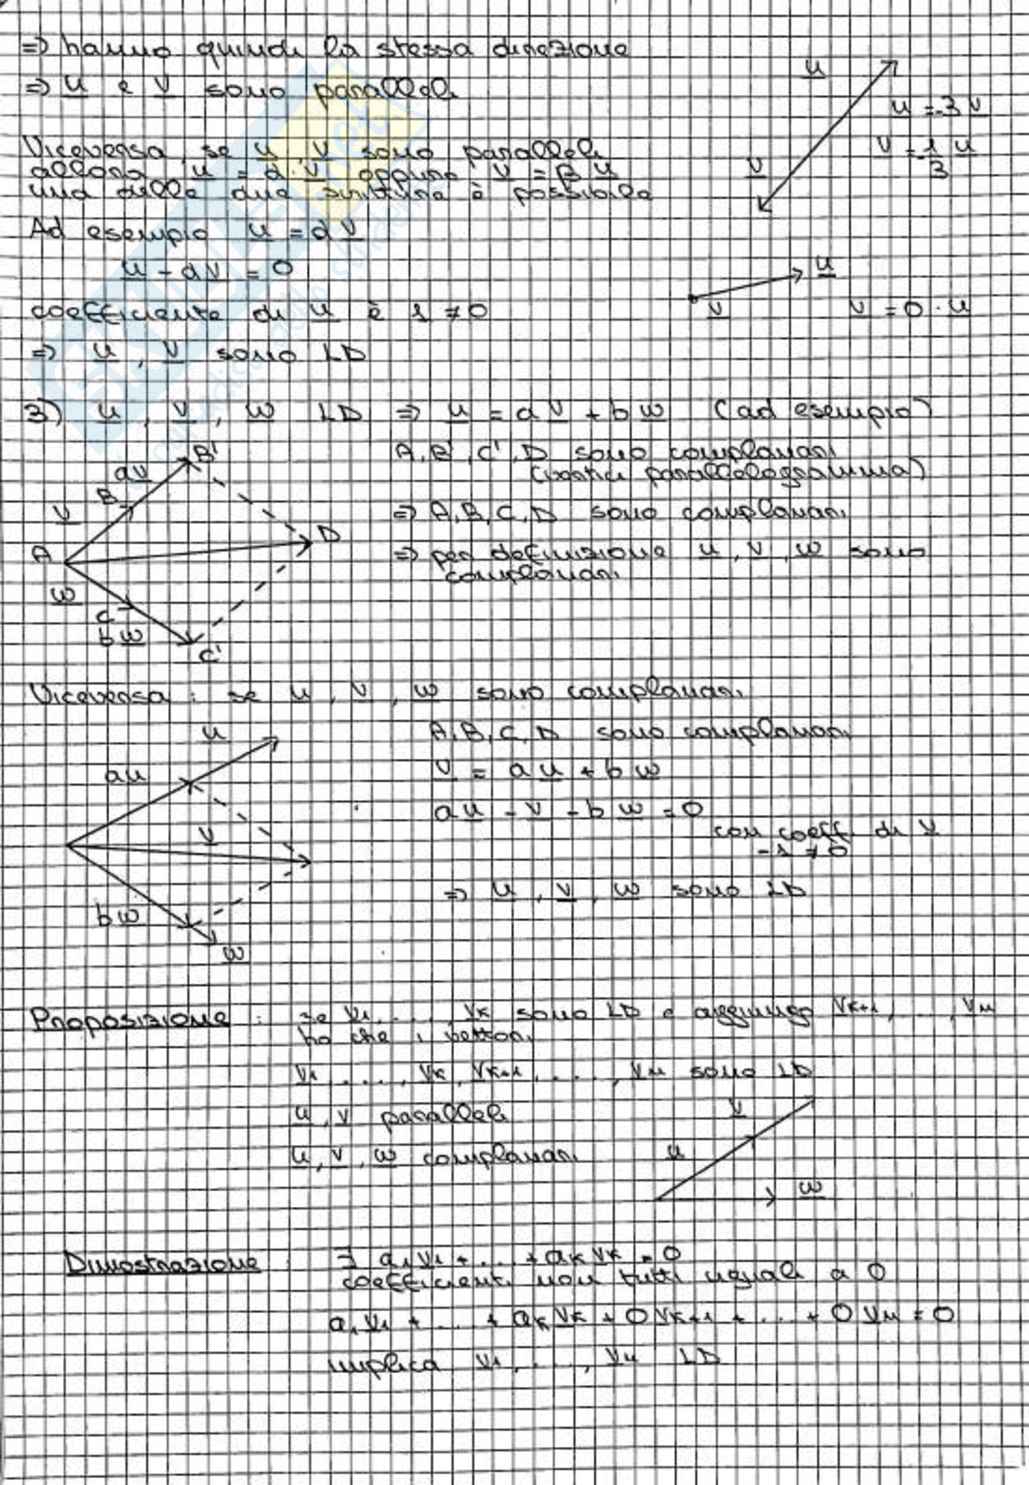 => hanno quindi la stessa direzione
=> u e v sono paralleli
u
u = -3 v
v = -1/3 u
v
Viceversa se u, v sono paralleli
allora u = α · v oppure v = β u
una delle due scritture è possibile
Ad esempio u = αv
u - αv = 0
u
v
v = 0 · u
coefficiente di u è 1 ≠ 0
=> u, v sono LD
3) u, v, w LD => u = av + bw (ad esempio)
B'
av
B
v
A
D
w
C
bw
C'
A, B', C', D sono complanari
(vertici parallelogramma)
=> A, B, C, D sono complanari
=> per definizione u, v, w sono
complanari
Viceversa : se u, v, w sono complanari
u
au
v
bw
w
A, B, C, D sono complanari
v = au + bw
au - v - bw = 0
con coeff. di v
-1 ≠ 0
=> u, v, w sono LD
Proposizione : se v1, ..., vk sono LD e aggiungo vk+1, ..., vn
ho che i vettori
v1, ..., vk, vk+1, ..., vn sono LD
u, v paralleli
u, v, w complanari
v
u
w
Dimostrazione : ∃ a1v1 + ... + akvk = 0
coefficienti non tutti uguali a 0
a1v1 + ... + akvk + 0vk+1 + ... + 0vn = 0
implica v1, ..., vn LD